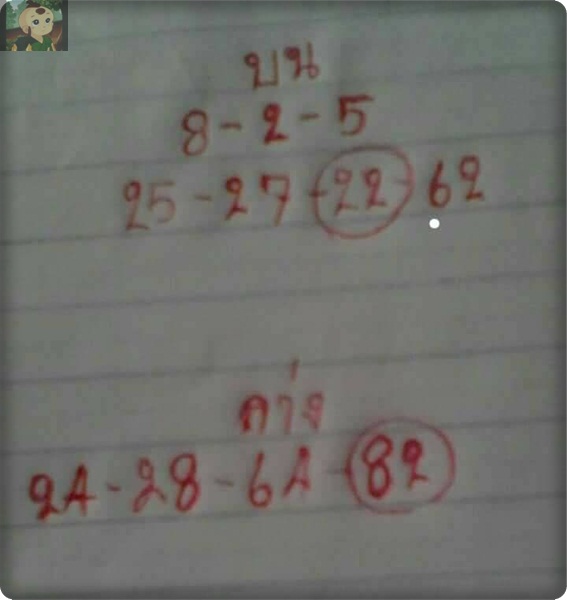 บน
8-2-5
25-27-22-62
ล่าง
24-28-64-82